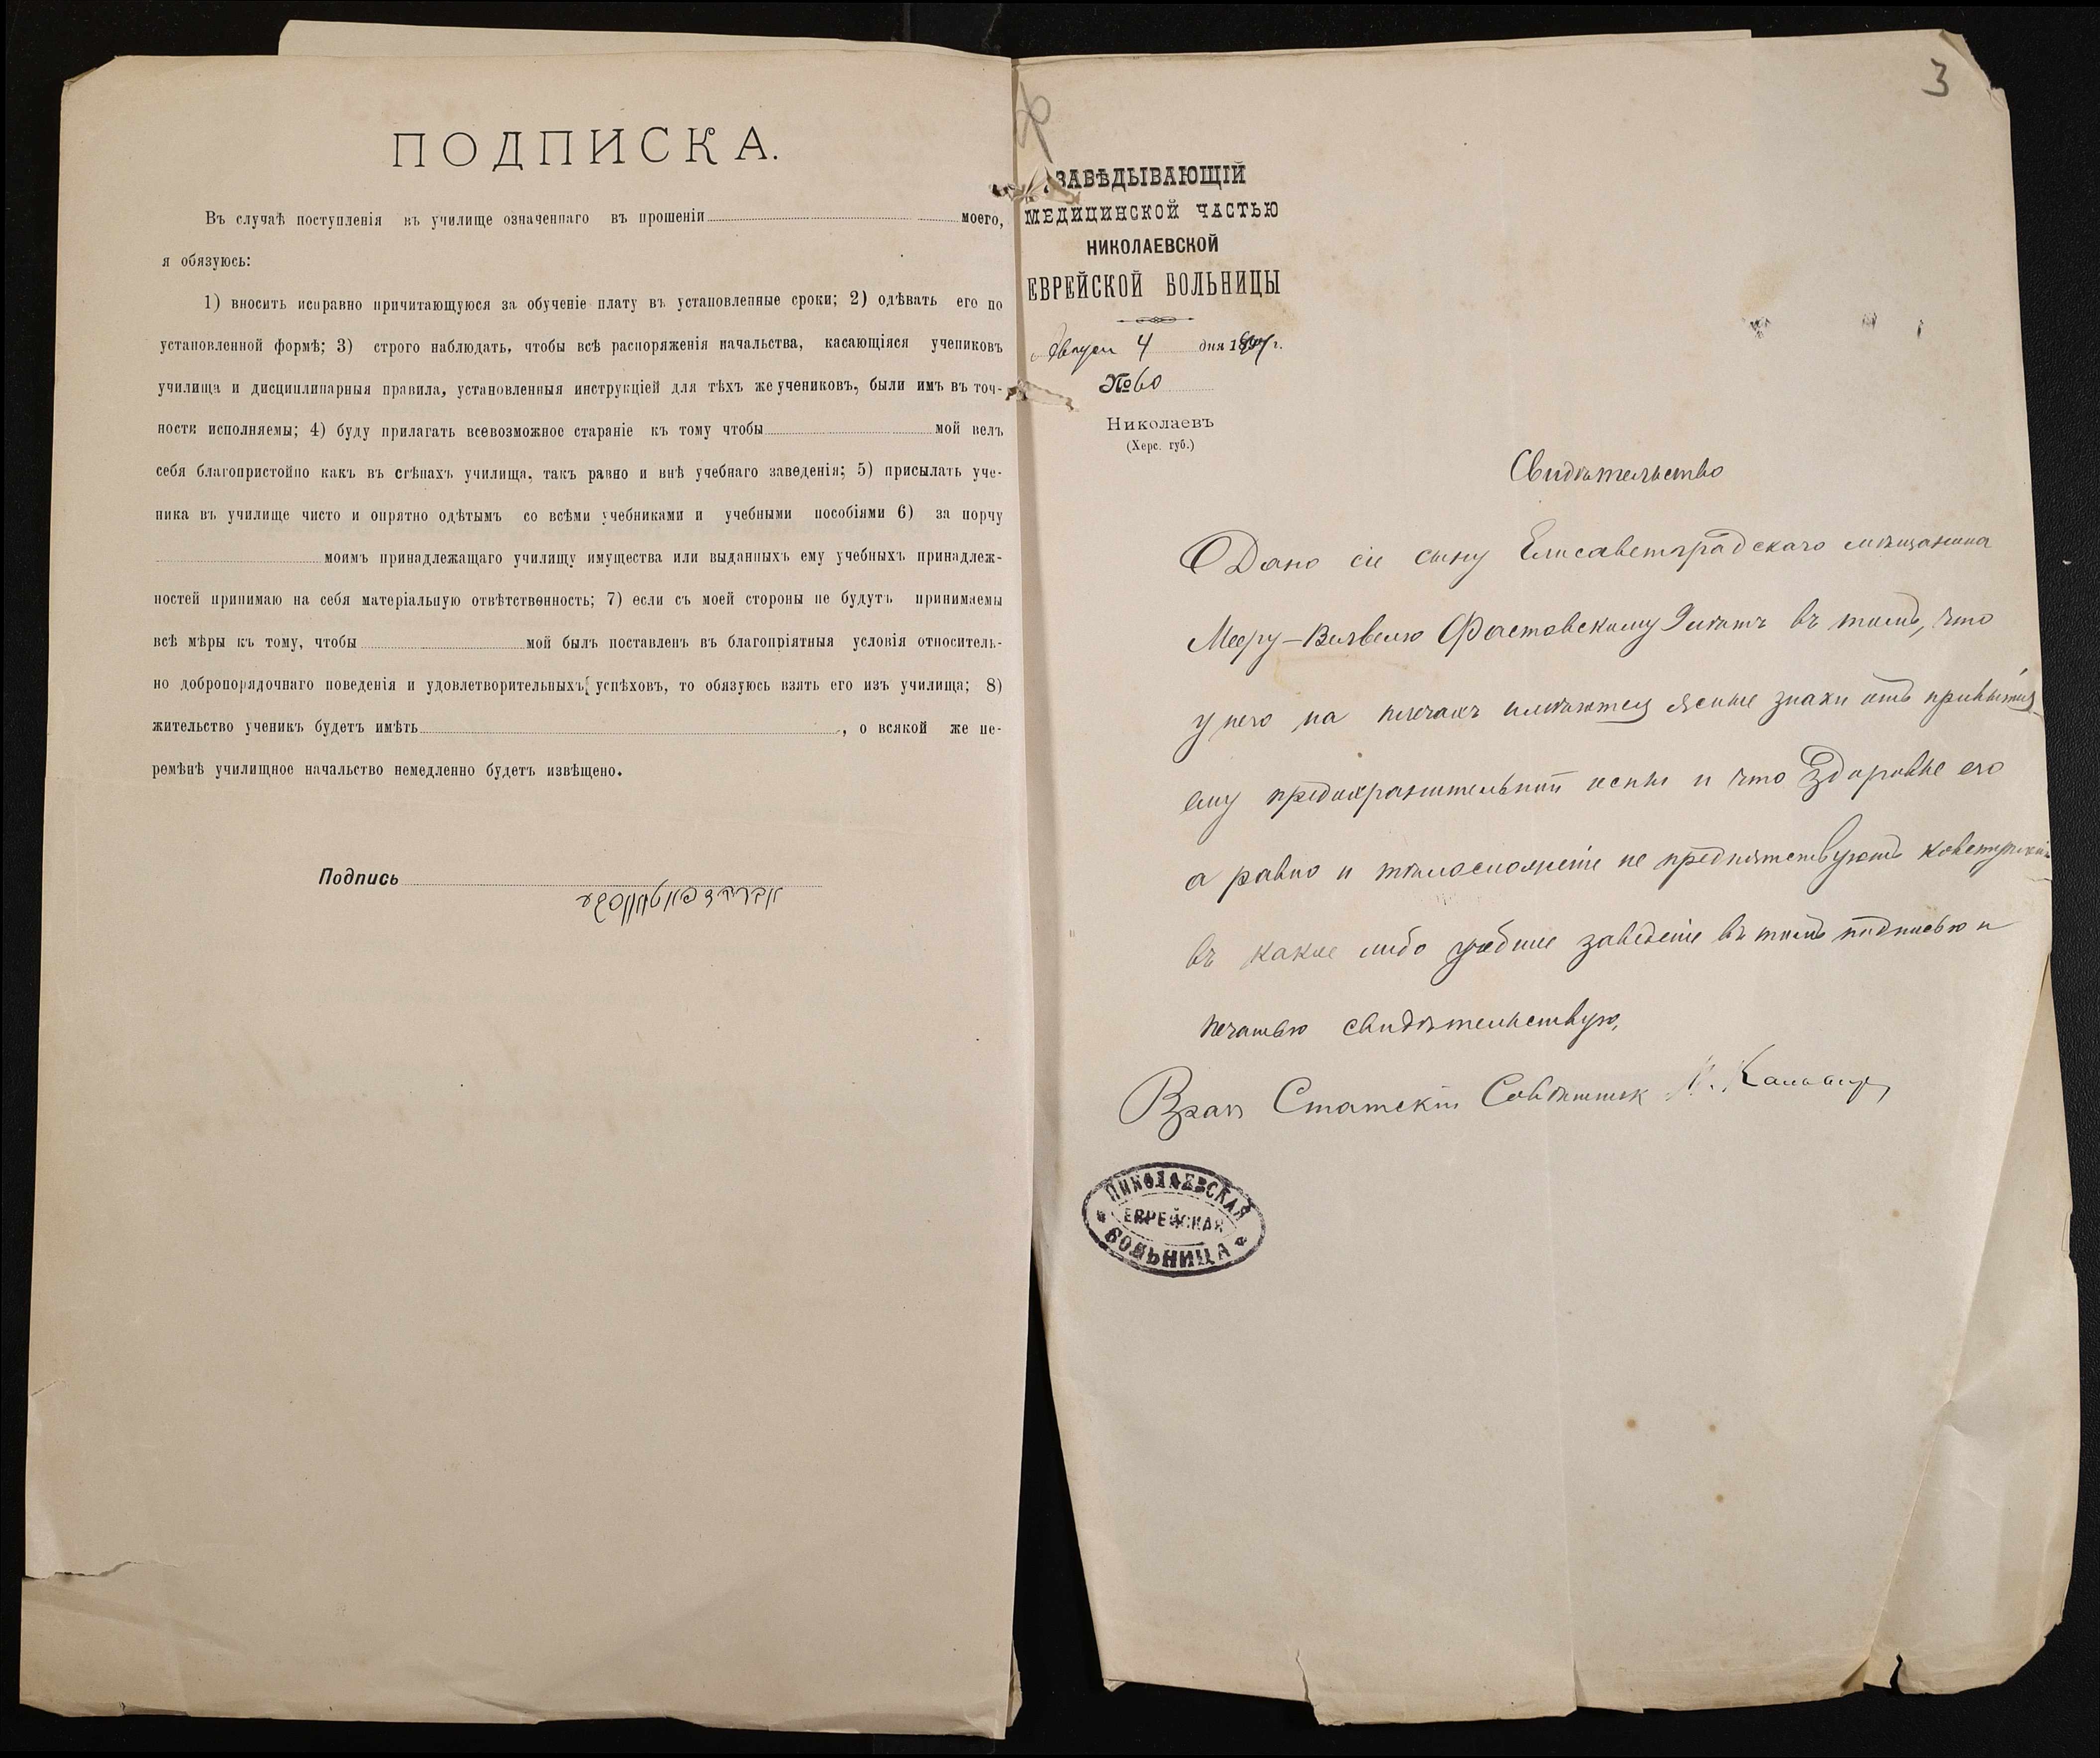 ПОДПИСКА.
Въ случаѣ поступленія въ училище означеннаго въ прошеніи моего,
я обязуюсь:
1) вносить исправно причитающуюся за обученіе плату въ установленные сроки; 2) одѣвать его по
установленной формѣ; 3) строго наблюдать, чтобы всѣ распоряженія начальства, касающіяся учениковъ
училища и дисциплинарныя правила, установленныя инструкціей для тѣхъ же учениковъ, были имъ въ точ-
ности исполняемы; 4) буду прилагать всевозможное стараніе къ тому чтобы мой велъ
себя благопристойно какъ въ стѣнахъ училища, такъ равно и внѣ учебнаго заведенія; 5) присылать уче-
ника въ училище чисто и опрятно одѣтымъ со всѣми учебниками и учебными пособіями 6) за порчу
моимъ принадлежащаго училищу имущества или выданныхъ ему учебныхъ принадлеж-
ностей принимаю на себя матеріальную отвѣтственность; 7) если съ моей стороны не будутъ принимаемы
всѣ мѣры къ тому, чтобы мой былъ поставленъ въ благопріятныя условія относитель-
но добропорядочнаго поведенія и удовлетворительныхъ успѣховъ, то обязуюсь взять его изъ училища; 8)
жительство ученикъ будетъ имѣть , о всякой же пе-
ремѣнѣ училищное начальство немедленно будетъ извѣщено.
Подпись
3
ЗАВѢДЫВАЮЩІЙ
МЕДИЦИНСКОЙ ЧАСТЬЮ
НИКОЛАЕВСКОЙ
ЕВРЕЙСКОЙ БОЛЬНИЦЫ
4 дня г.
№ 60
Николаевъ
(Херс. губ.)
Свидѣтельство
Дано сіе сыну Елисаветградскаго мѣщанина
Мееру-Велвелю Фастовскому въ томъ, что
у него на плечахъ имѣются ясные знаки отъ привитія
ему предохранительной оспы и что здоровье его
а равно и тѣлосложеніе не препятствуютъ
въ какое либо учебное заведеніе въ томъ подписью и
печатью свидѣтельствую,
Врачъ Статскій Совѣтникъ
НИКОЛАЕВСКАЯ
ЕВРЕЙСКАЯ
БОЛЬНИЦА